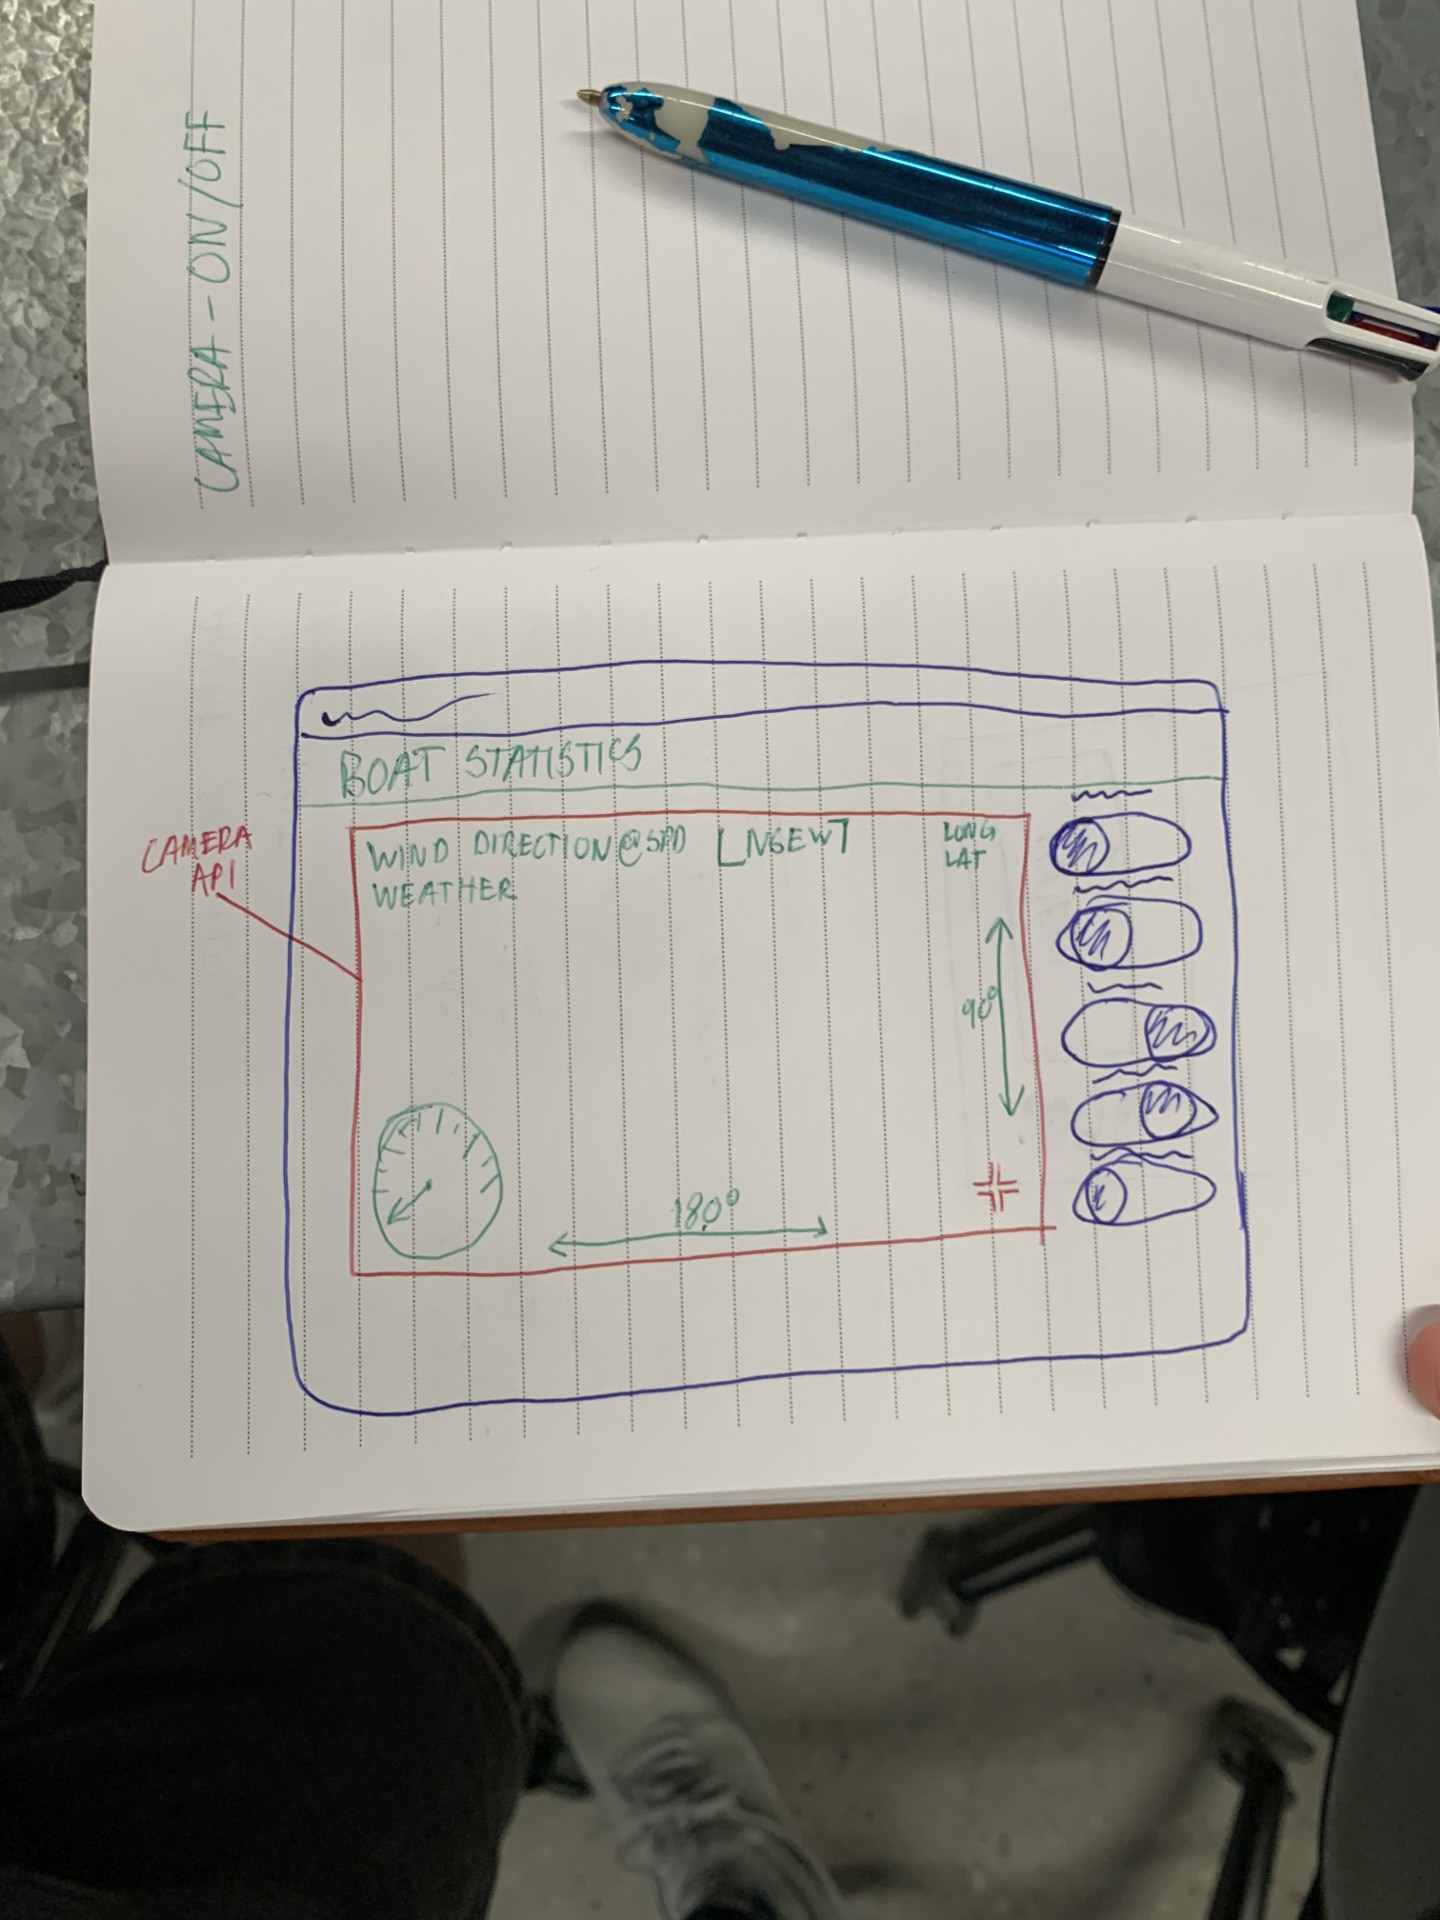 CAMERA - ON/OFF
BOAT STATISTICS
CAMERA
API
WIND DIRECTION@SPD [NSEW]
WEATHER
LONG
LAT
90°
180°